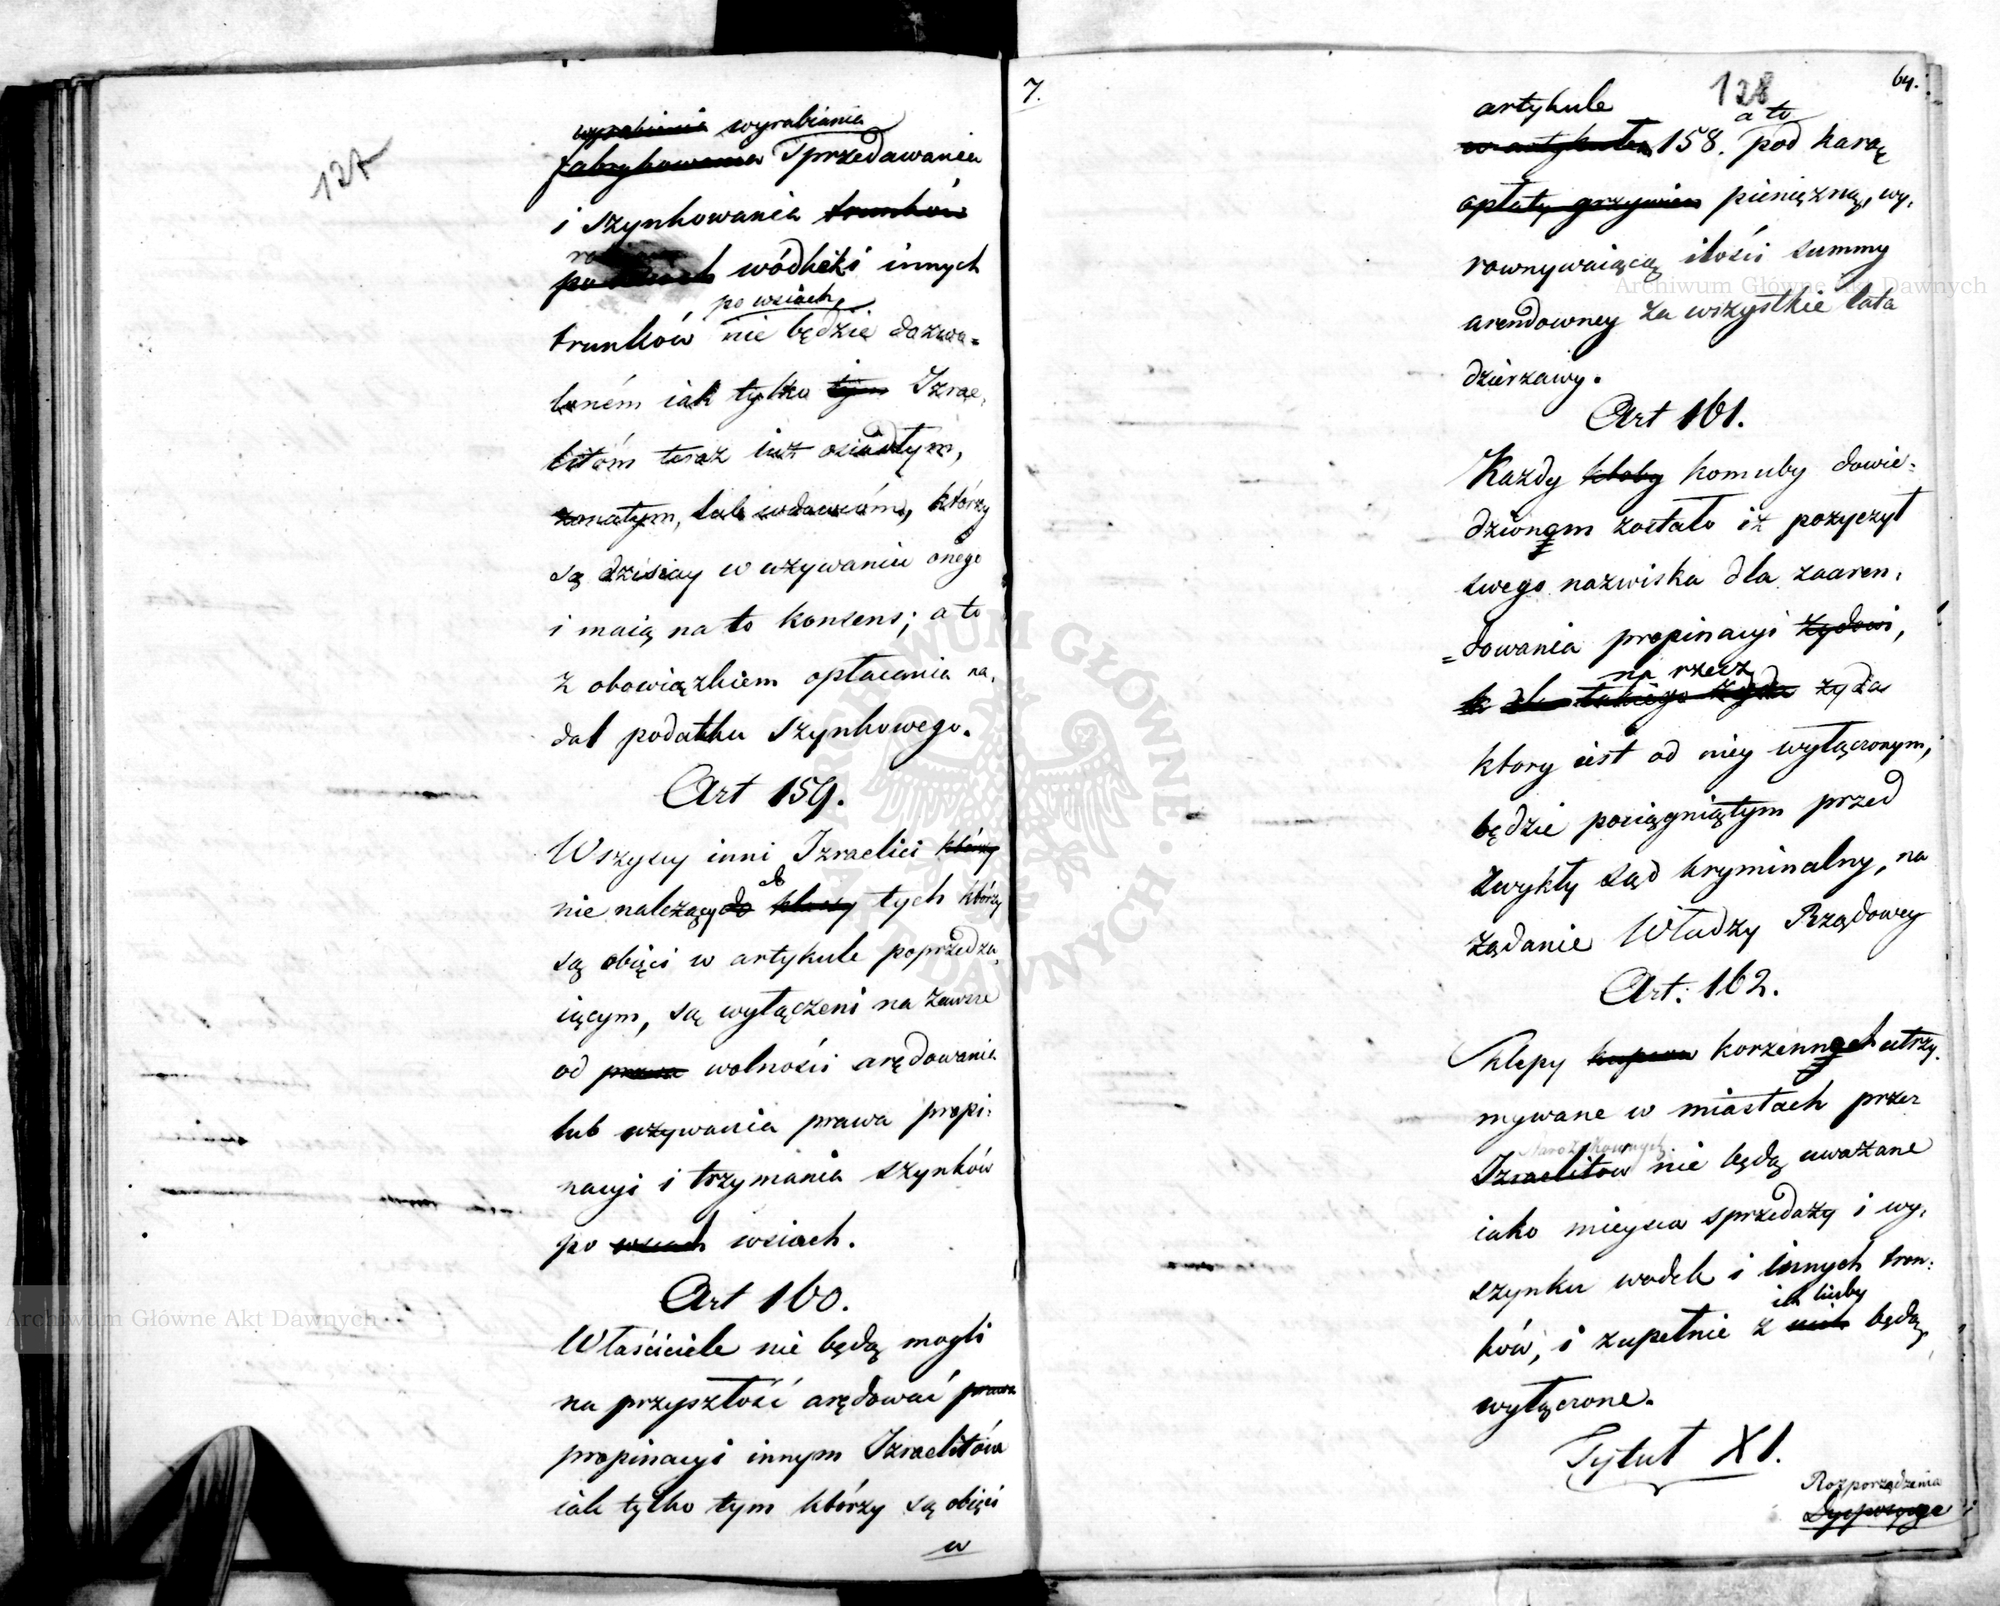 127
wyrabiania wyrabiania
fabrykowania sprzedawania
i szynkowania trunków
po wsiach wódki i innych
po wsiach
trunków nie będzie dozwo=
loném iak tylko tym Izrae,
litóm teraz iuż osiadłym,
żonatym, lub wdowcóm, którzy
są dzisiay w używaniu onego
i maią na to konsens; a to
z obowiązkiem opłacania na,
dal podatku szynkowego.
Art 159.
Wszyscy inni Izraelici którzy
do
nie należący do klassy tych którzy
są obięci w artykule poprzedza,
iącym, są wyłączeni na zawsze
od prawa wolności arędowania
lub używania prawa propi,
nacyi i trzymania szynków
po wsiach wsiach.
Art 160.
Właściciele nie będą mogli
na przyszłość arędować prawa
propinacyi innym Izraelitów
iak tylko tym którzy są obięci
w
7.
128
64.
artykule
a to
w artykule 158. pod karą
opłaty grzywien pieniężną, wy,
rownywaiącą ilości summy
arendowney za wszystkie lata
dzierzawy.
Art 161.
Kazdy ktoby komuby dowie=
dzionem zostało iż pozyczył
swego nazwiska dla zaaren,
=dowania propinacyi żydowi,
na rzecz
takiego żyda żyda
ktory iest od niey wyłączonym,
będzie pociągniętym przed
zwykły sąd kryminalny, na
żądanie Władzy Rządowey
Art: 162.
Sklepy korzennych utrzy,
mywane w miastach przez
Starozakonnych
Izraelitów nie będą uważane
iako mieysca sprzedaży i wy,
szynku wodek i innych trun:
ich liczby
ków, i zupełnie z nich będą
wyłączone.
Tytuł XI.
Rozporządzenia
Dyspozycye
Archiwum Główne Akt Dawnych
Archiwum Główne Akt Dawnych
ARCHIWUM GŁÓWNE AKT DAWNYCH